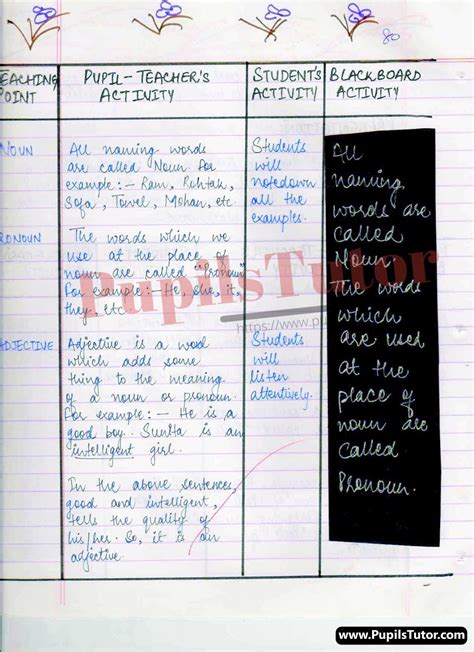 80
TEACHING POINT
PUPIL-TEACHER'S ACTIVITY
STUDENT'S ACTIVITY
BLACKBOARD ACTIVITY
NOUN
All naming words
are called Noun. For
example:- Ram, Rohtak,
Sofa, Towel, Mohan, etc.
Students
will
notedown
all the
examples.
PRONOUN
The words which we
use at the place of
noun are called "Pronoun"
For example:- He, she, it,
they, etc
ADJECTIVE
Adjective is a word
which adds some
thing to the meaning
of a noun or pronoun.
For example:- He is a
good boy. Sunita is an
intelligent girl.
In the above sentences,
good and intelligent,
tells the quality of
his/her. So, it is an
adjective.
Students
will
listen
attentively.
All
naming
words are
called
Noun.
The words
which
are used
at the
place of
noun are
called
Pronoun.
PupilsTutor
https://www.pu
www.PupilsTutor.com